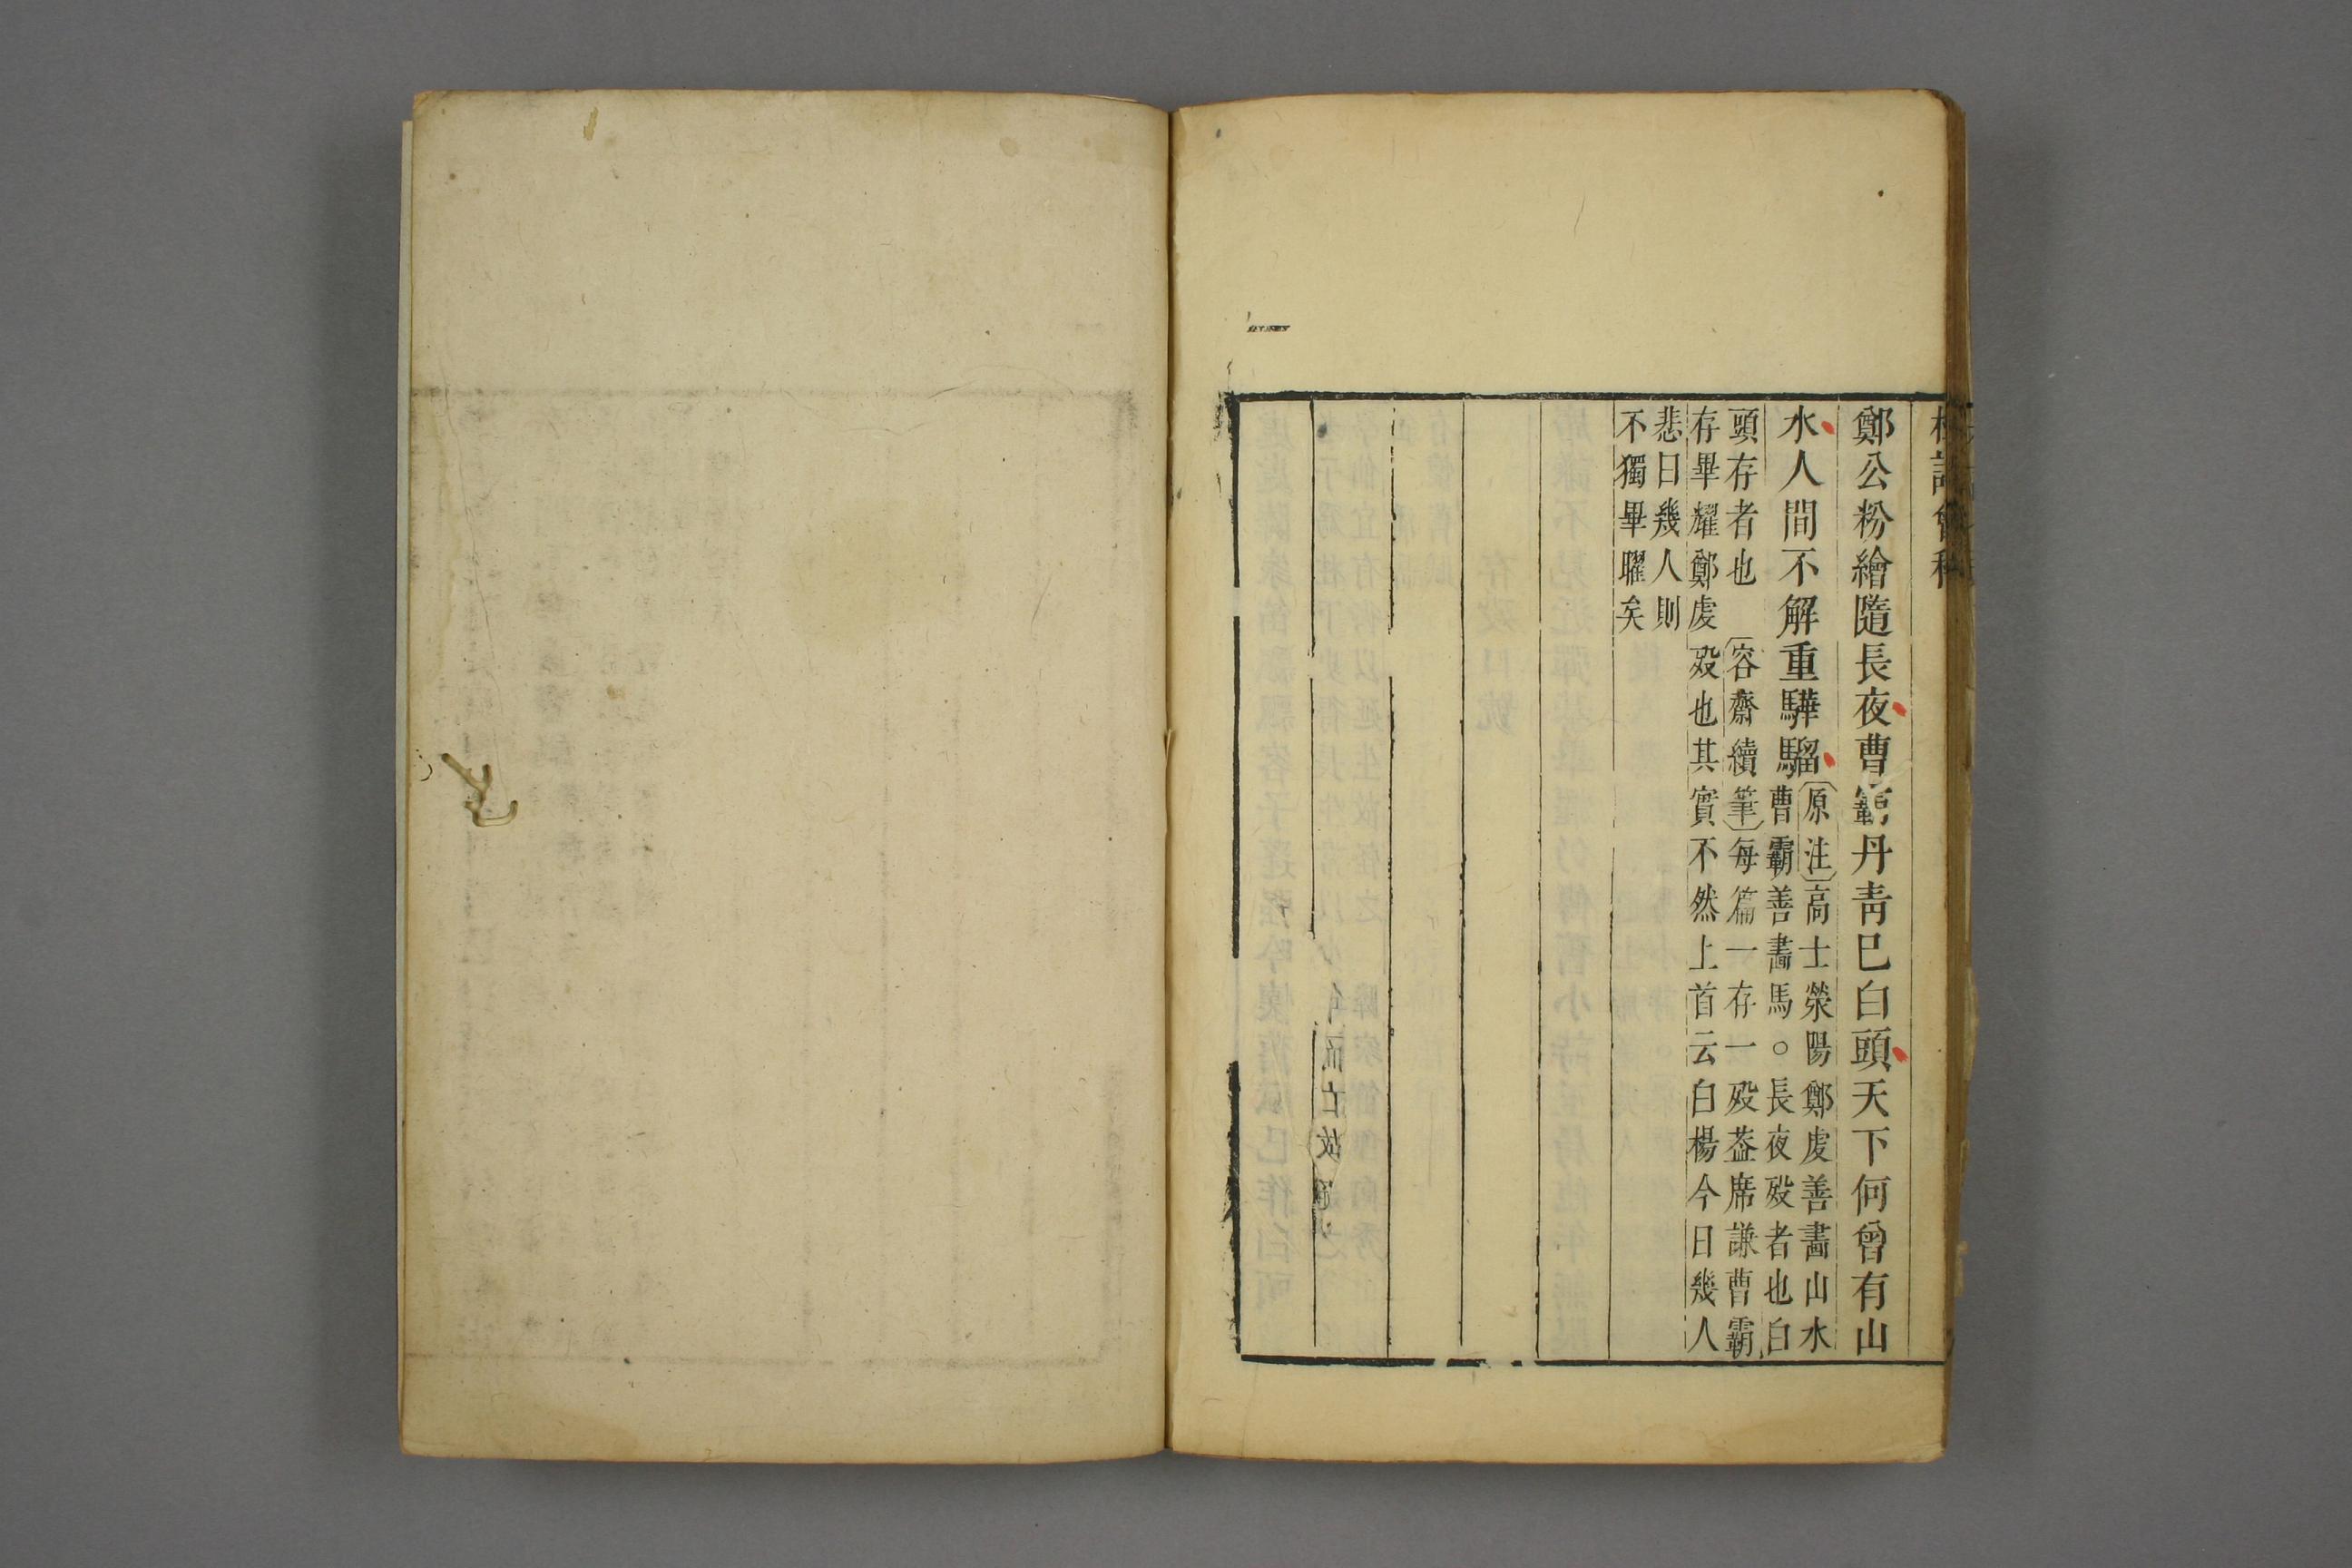 杜詩會稡
鄭公粉繪隨長夜曹霸丹靑巳白頭天下何曾有山
水人間不解重驊騮
〔原注〕高士滎陽鄭虔善畫山水
曹霸善畫馬○長夜歿者也白
頭存者也〔容齋續筆〕每篇一存一歿葢席謙曹霸
存畢耀鄭虔歿也其實不然上首云白楊今日幾人
悲曰幾人則
不獨畢曜矣